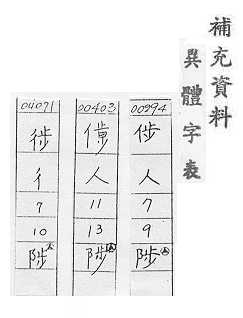 補充資料
異體字表
00294
人
7
9
陟
00403
人
11
13
陟
04071
徏
彳
7
10
陟